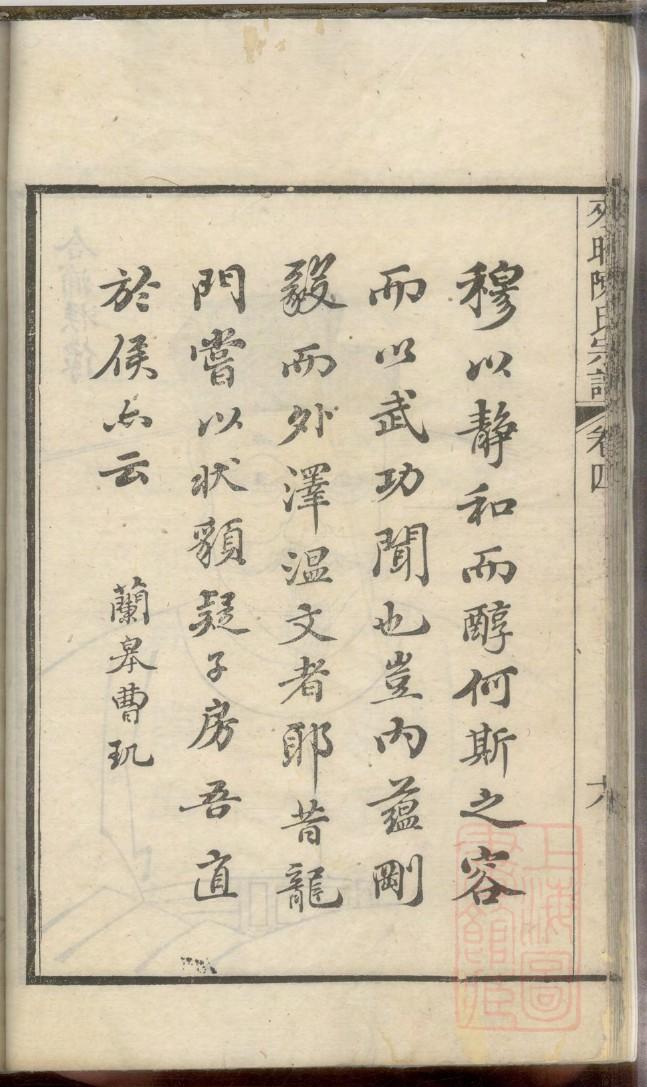 穆以静和而醇何斯之容
而以武功聞也豈内蘊剛
毅而外澤温文者耶昔龍
門嘗以狀貌疑子房吾直
於侯亦云
蘭皋曹玑
陳氏宗譜
卷四
上海圖
書館藏